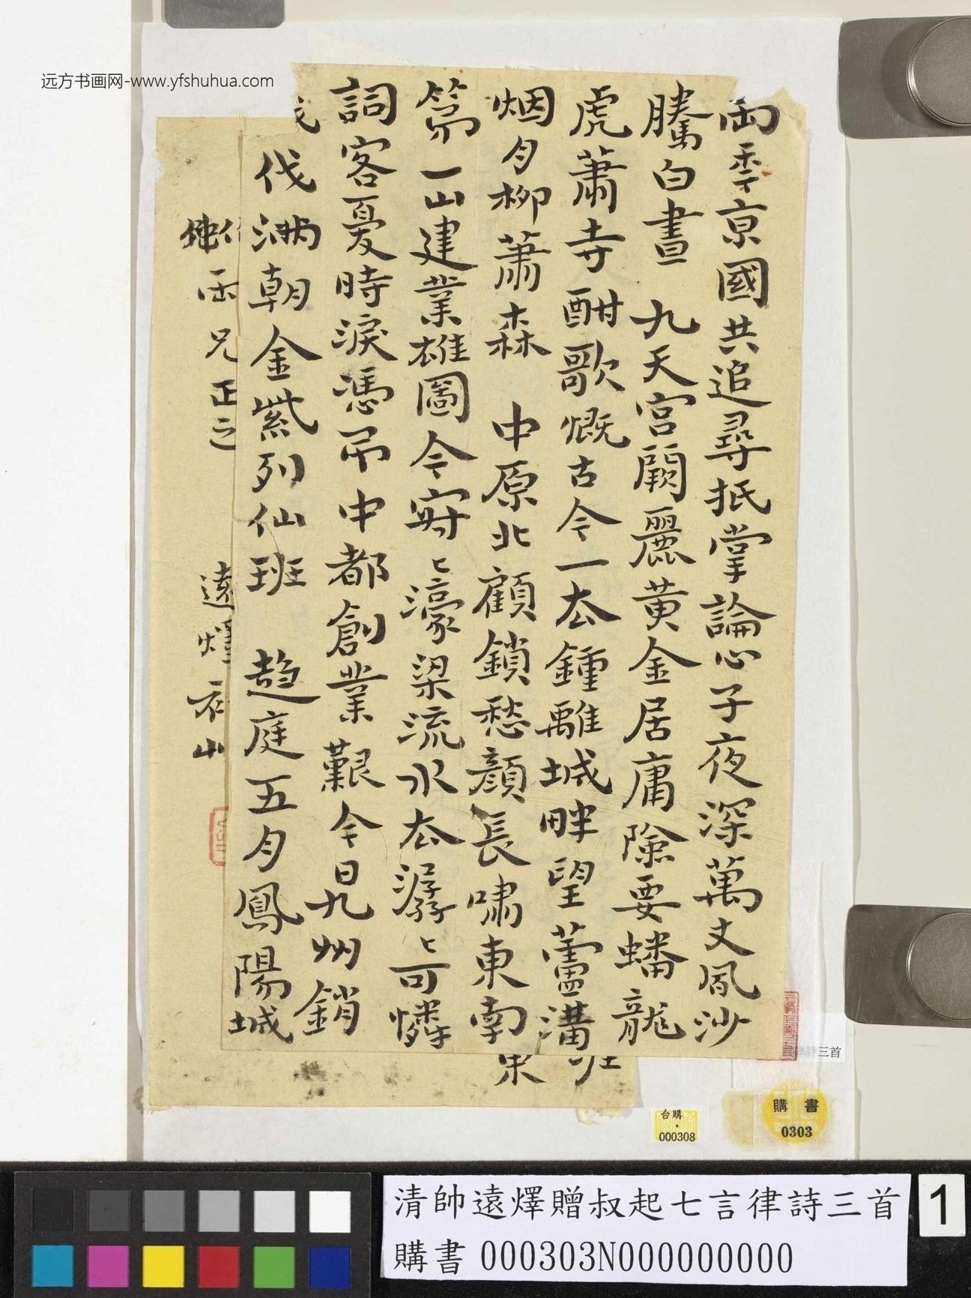 远方书画网-www.yfshuhua.com
兩秊京國共追尋抵掌論心子夜深萬丈風沙
騰白晝 九天宮闕麗黃金居庸險要蟠龍
虎蕭寺酣歌慨古今一厺鍾離城畔望蘆溝
烟月柳蕭森 中原北顧鎖愁顏長嘯東南
第一山建業雄圖今寂〻濠梁流水厺潺〻可憐
詞客憂時淚憑弔中都創業艱今日九州銷
伐滿朝金紫列仙班 趨庭五月鳳陽城
兄正之 遠燡
三首
台購
000308
購書
0303
清帥遠燡贈叔起七言律詩三首
購書 000303N000000000
1